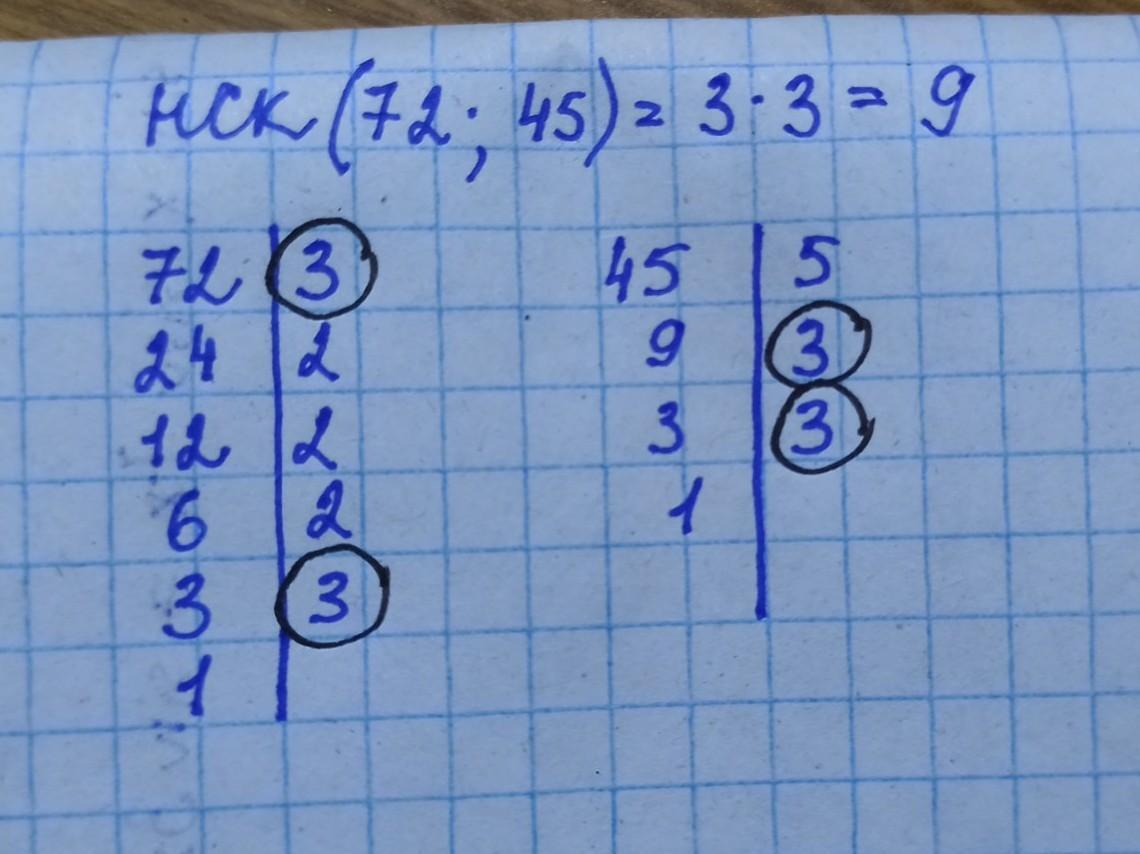 НСК (72; 45) = 3·3 = 9
72 | 3 45 | 5
24 | 2 9 | 3
12 | 2 3 | 3
6 | 2 1 |
3 | 3
1 |